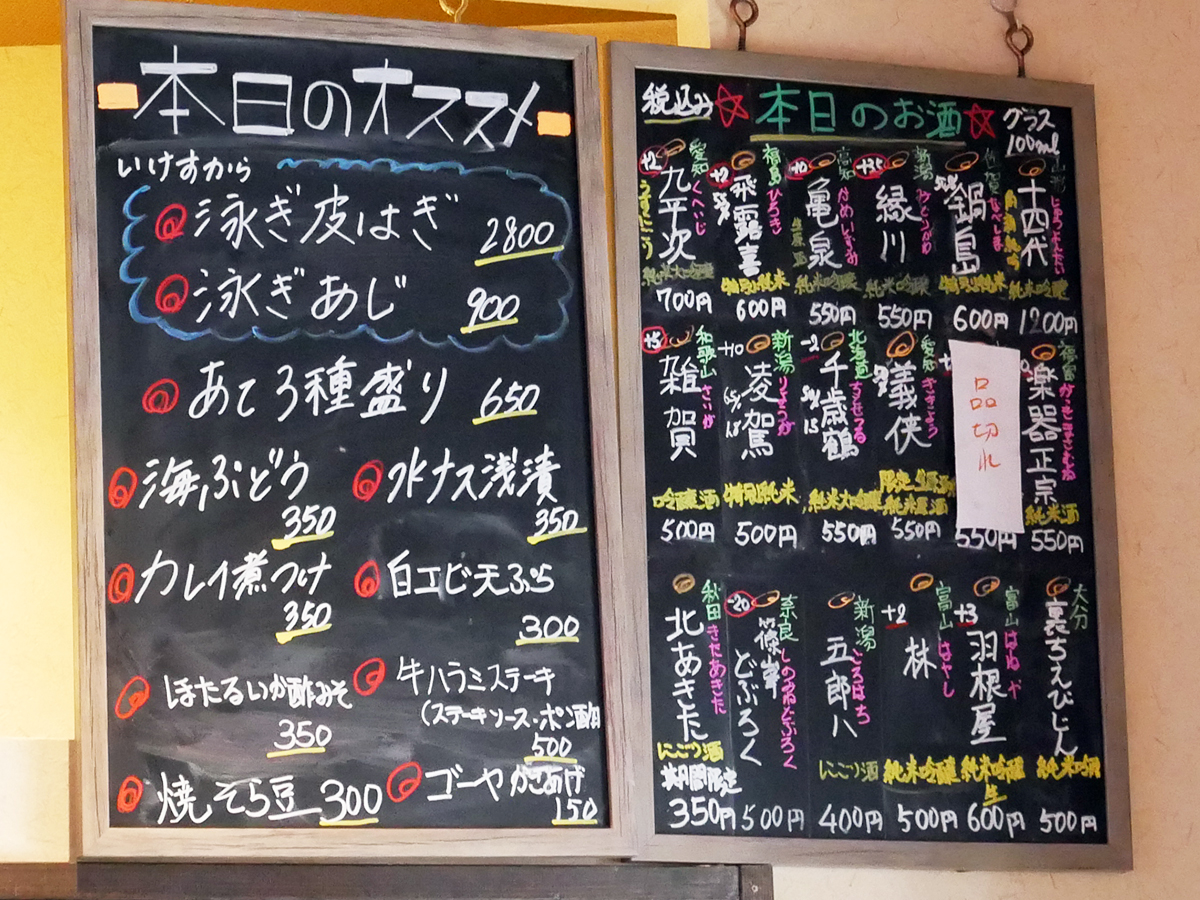 本日のオススメ
いけすから
泳ぎ皮はぎ 2800
泳ぎあじ 900
あて3種盛り 650
海ぶどう 350
水ナス浅漬 350
カレイ煮つけ 350
白エビ天ぷら 300
ほたるいか酢みそ 350
牛ハラミステーキ
(ステーキソース・ポン酢)
500
焼そら豆 300
ゴーヤかきあげ 150
税込み 本日のお酒 グラス 100ml
十四代 じゅうよんだい 純米吟醸 1200円
鍋島 なべしま 特別純米 600円
新潟 縁川 純米吟醸 550円
高知 亀泉 かめいずみ 純米吟醸 550円
福島 ひろき 飛露喜 特別純米 600円
+2 愛知 くへいじ 九平次 純米大吟醸 700円
楽器正宗 がっきまさむね 純米酒 550円
品切れ 550円
愛知 義侠 ぎきょう 限定 生原酒 純米原酒 550円
-2 北海道 千歳鶴 ちとせつる 純米大吟醸 550円
+10 新潟 りょうが 凌駕 特別純米 500円
+5 和歌山 さいか 雑賀 吟醸酒 500円
大分 裏ちえびじん 純米吟醸 500円
+3 富山 はねや 羽根屋 純米吟醸 生 600円
+2 富山 はやし 林 純米吟醸 500円
新潟 ごろはち 五郎八 にごり酒 400円
-20 奈良 しのみねどぶろく 篠峯どぶろく 500円
秋田 きたあきた 北あきた にごり酒 期間限定 350円